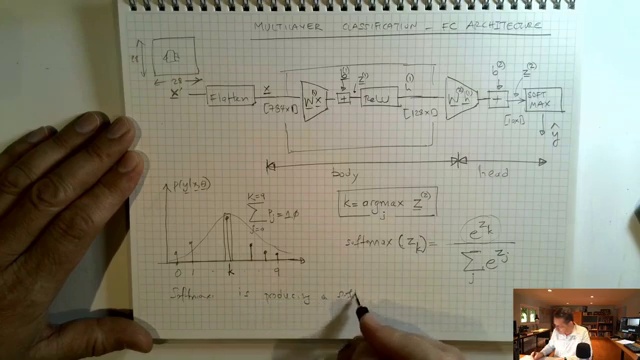 MULTILAYER CLASSIFICATION - FC ARCHITECTURE
28
28
x' Flatten x W(1) x b(1) + z(1) ReLU h(1) W(2) h(1) b(2) + z(2) SOFT MAX
[128x1] [10x1] ŷ
body head
p(y|x,θ) K=9 Σ j=0 ŷj = 1.0
0 1 k 9
k = argmax j z(2)
softmax (zk) = e^zk / Σ j e^zj
Softmax is producing a sof